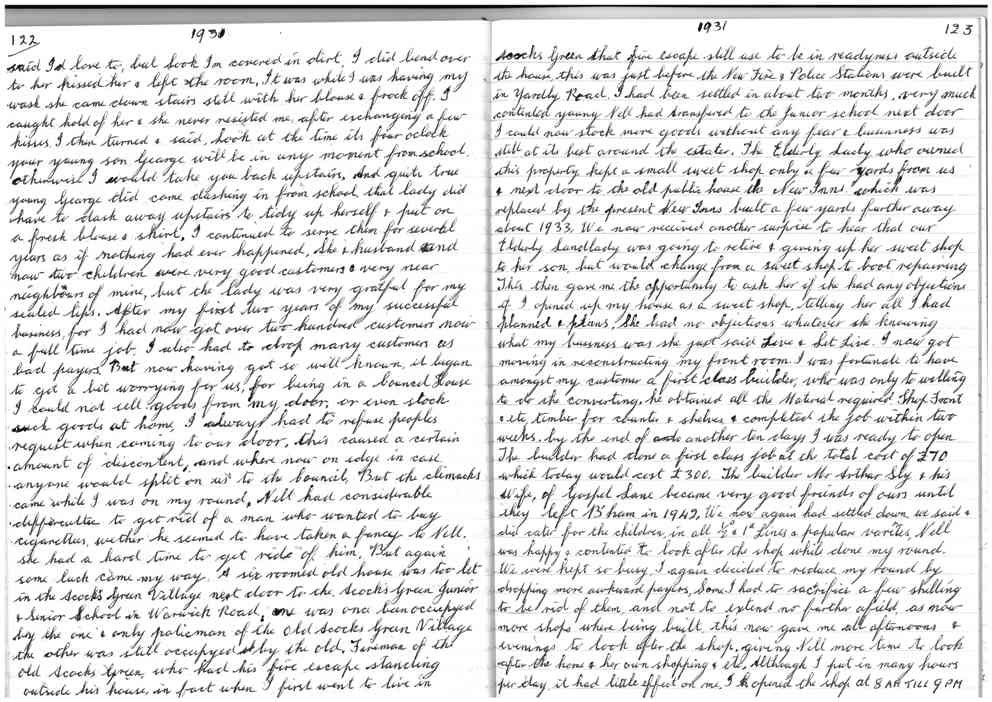 122
1931
said I'd love to, but look I'm covered in dirt, I did bend over
to her kissed her & left the room, It was while I was having my
wash she came down stairs still with her blouse & frock off. I
caught hold of her & she never resisted me, after exchanging a few
kisses. I then turned & said, Look at the time its four oclock
your young son George will be in any moment from school.
otherwise I would take you back upstairs, and quite true
young George did come dashing in from school that lady did
have to dash away upstairs to tidy up herself & put on
a fresh blouse & skirt, I continued to serve them for several
years as if nothing had ever happened, She & husband and
now two children were very good customers & very near
neighbours of mine, but the lady was very gratful for my
sealed lips. After my first two years of my successful
business, for I had now got over two hundred customers now
a full time job. I also had to drop many customers as
bad payers. But now having got so well known, it began
to get a bit worrying for us, for being in a council House
I could not sell goods from my door, or even stock
such goods at home, I always had to refuse peoples
request when coming to our door, this caused a certain
amount of discontent, and where now on edge in case
anyone would split on us to the bouncil, But the climacks
came while I was on my round, Nell had considerable
difficultie to get rid of a man who wanted to buy
cigarettes, wether he seemed to have taken a fancy to Nell.
she had a hard time to get ride of him, But again
some luck came my way. A six roomed old house was too let
in the Acocks Green Village next door to the Acocks Green Junior
& Senior School in Warwick Road, one was once been occupyed
by the one & only policman of the Old Acocks Green Village
the other was still occupyed by the old Fireman of the
old Acocks Green, who had his fire escape standing
outside his house, in fact when I first went to live in
1931
123
Acocks Green that fire escape still use to be in readyness outside
the house, this was just before the New Fire & Police Stations were built
in Yardley Road. I had been settled in about two months, very much
contented young Nell had transfered to the Junior school next door
I could now stock more goods without any fear & busieness was
still at its best around the estates. The Elderly Lady who owned
this property kept a small sweet shop only a few yards from us
& next door to the old public house the New Inns which was
replaced by the present New Inns built a few yards further away
about 1933. We now received another surprise to hear that our
Elderly Landlady was going to retire & giving up her sweet shop
to his son, but would change from a sweet shop to boot repairing
This then gave me the opportunity to ask her if she had any objections
if I opened up my house as a sweet shop, telling her all I had
planned & plans. She had no objections whatever she knowing
what my busness was she just said Live & Let Live. I now got
moving in reconstructing my front room I was fortunate to have
amongst my customer a first class builder, who was only to willing
to do the converting. he obtained all the Material required Shop Front
& etc, timber for counter & shelves & completed the job within two
weeks. by the end of another ten days I was ready to open
The builder had done a first class job at the total cost of £70
which today would cost £300. The builder Mr Arthur Sly & his
Wife, of Gospel Lane became very good friends of ours until
they left B'ham in 1942. We now again had settled down we said &
did cater for the children, in all ½d & 1d Lines & populare varites, Nell
was happy & contented to look after the shop while done my round.
We were kept so busy. I again decided to reduce my round by
dropping more awkward payers. Some I had to sacrifice a few shelling
to be rid of them, and not to extend no further afield, as now
more shops where being built, this now gave me all afternoons &
evenings to look after the shop, giving Nell more time to look
after the home & her own shopping & etc. Although I put in many hours
per day, it had little effect on me. I opened the shop at 8 AM TILL 9 PM